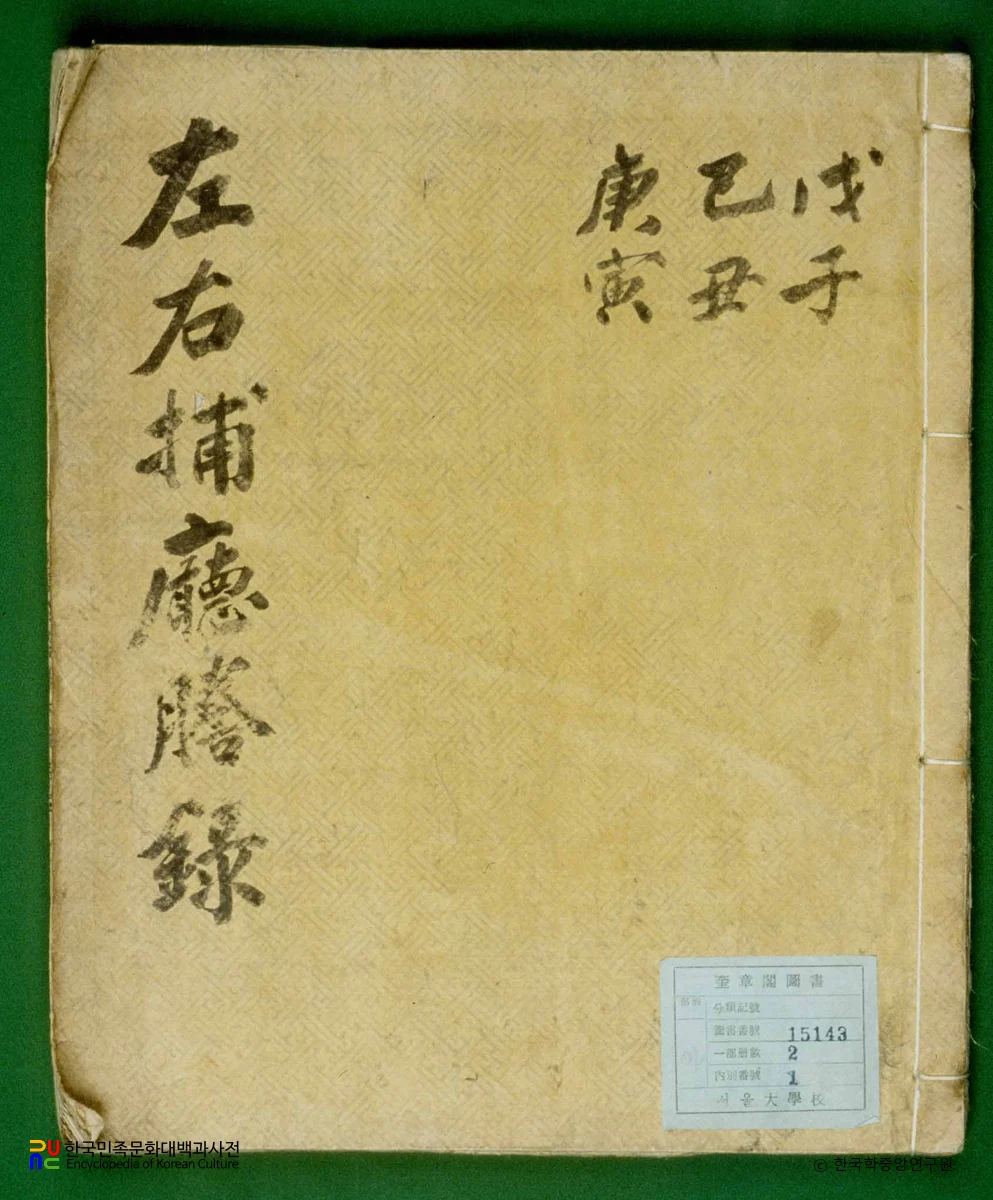 戊子
己丑
庚寅
左右捕廳謄錄
奎章閣圖書
部別
分類記號
圖書番號 15143
一部冊數 2
內別番號 1
서울大學校
한국민족문화대백과사전
Encyclopedia of Korean Culture
© 한국학중앙연구원